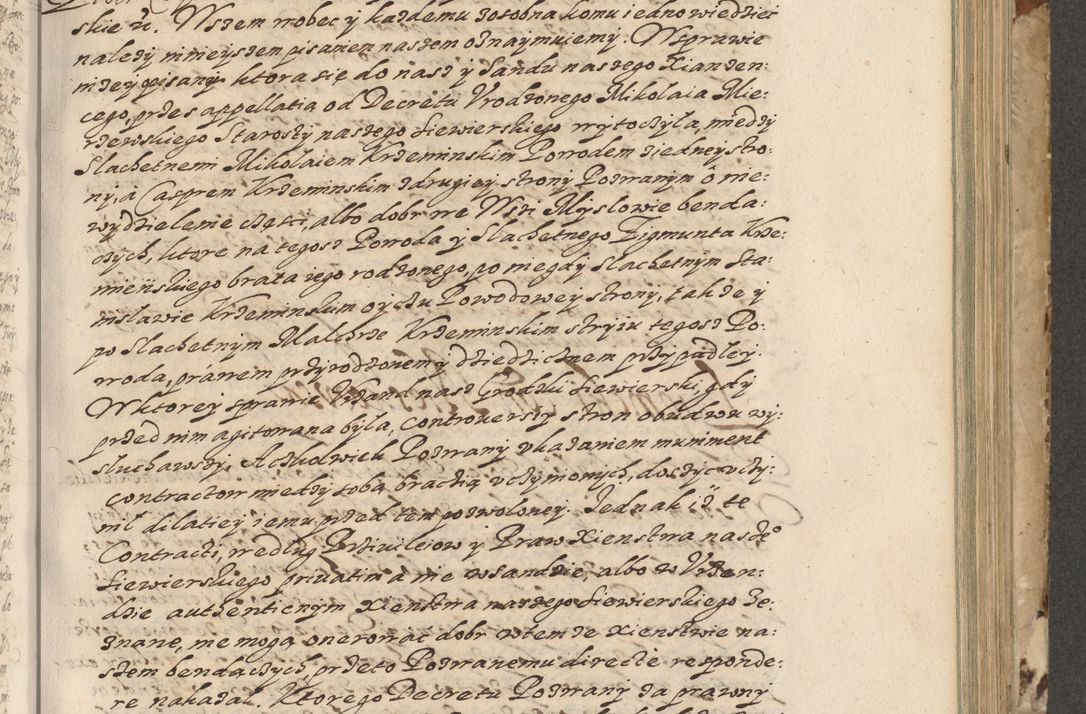 skie &c. Wszem wobec y kazdemu zosobna komu iedno wiedziec
nalezy ninieyszem pisaniem naszem oznaymuiemy: W sprawie
nizey pisany ktora się do nasz y Sandu naszego Xianzen:
cego, przes appellatia od Decretu Vrodzonego Mikolaia Mie:
rzewskiego Starosty naszego Siewierskiego wytoczyla, miedzy
Slachetnemi Mikolaiem Krzeminskim Powodem z iedney stro:
ny, a Casprem Krzeminskim z drugiey strony Pozwanym o nie:
wydzielenie części, albo dobr we Wsi Myslowie benda:
cych, ktore na tegosz Powoda y Slachetnego Zigmunta Krze:
mieńskiego brata iego rodzonego, po niegdy Slachetnym Sta:
nislawie Krzeminskim oyczu Powodowey strony, takze y
po Slachetnym Malchrze Krzeminskim stryiu tegosz Po:
woda, prawem przyrodzonem y dziedzicznem przypadley.
W ktorey sprawie Vrzand nasz Grodzki Siewierski, gdy
przed nim agitowana była, controuersiy stron obudwu wy:
sluchawszy, Aczkolwiek Pozwany vkazaniem muniment
contractow miedzy sobą bracią vczynionych, doszyc vczy:
nil dilatiey iemu przed tem pozwoloney. Jednak isz te
Contracti, według Priuileiow y Praw Xienstwa nasze°
Siewierskiego priuatim a nie w sandzie, albo w Vrzen:
dzie authenticnym Xienstwa naszego Siewierskiego ze:
znane, nie mogą onerować dobr w temze Xienstwie na:
szem bendączych, przeto Pozwanemu directe responde:
re nakazal. Ktorego Decretu Pozwany za prawny